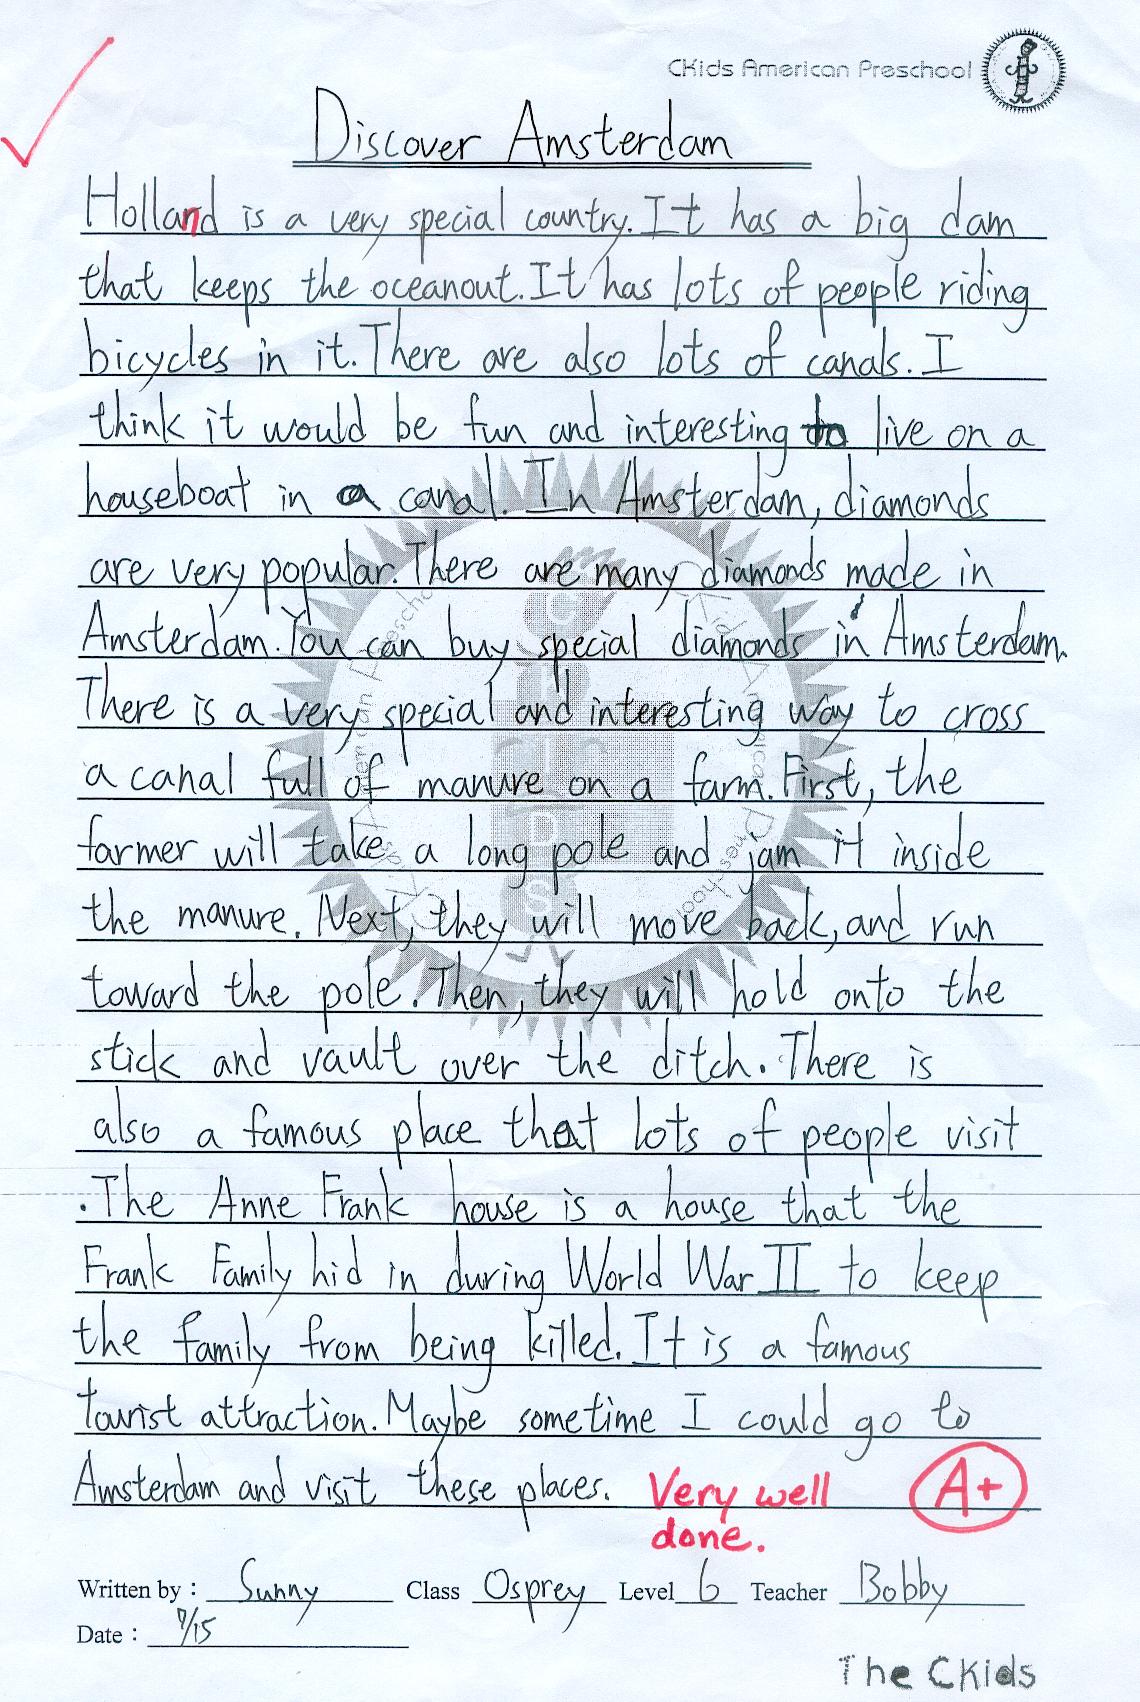 CKids American Preschool
Discover Amsterdam
Holland is a very special country. It has a big dam
that keeps the oceanout. It has lots of people riding
bicycles in it. There are also lots of canals. I
think it would be fun and interesting to live on a
houseboat in a canal. In Amsterdam, diamonds
are very popular. There are many diamonds made in
Amsterdam. You can buy special diamonds in Amsterdam.
There is a very special and interesting way to cross
a canal full of manure on a farm. First, the
farmer will take a long pole and jam it inside
the manure. Next, they will move back, and run
toward the pole. Then, they will hold onto the
stick and vault over the ditch. There is
also a famous place that lots of people visit
. The Anne Frank house is a house that the
Frank Family hid in during World War II to keep
the family from being killed. It is a famous
tourist attraction. Maybe sometime I could go to
Amsterdam and visit these places. Very well A+
done.
Written by : Sunny Class Osprey Level 6 Teacher Bobby
Date : 7/15
The CKids